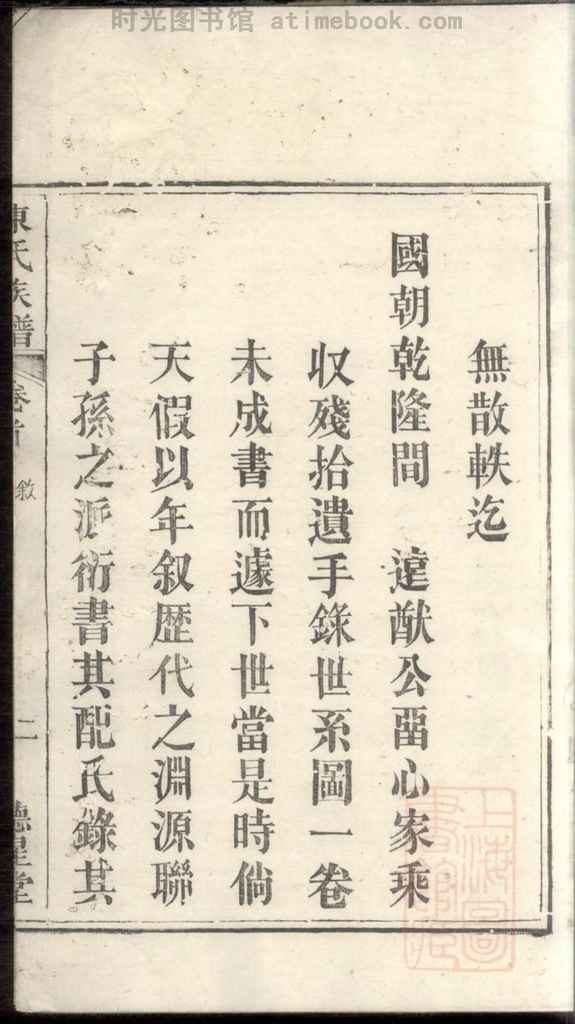 时光图书馆 atimebook.com
無散軼迄
國朝乾隆間 遠猷公畱心家乘
收殘拾遺手錄世系圖一卷
未成書而遽下世當是時倘
天假以年叙歷代之淵源聯
子孫之派衍書其配氏錄其
陳氏族譜 卷首 敘 二 德星堂
上海圖書館藏